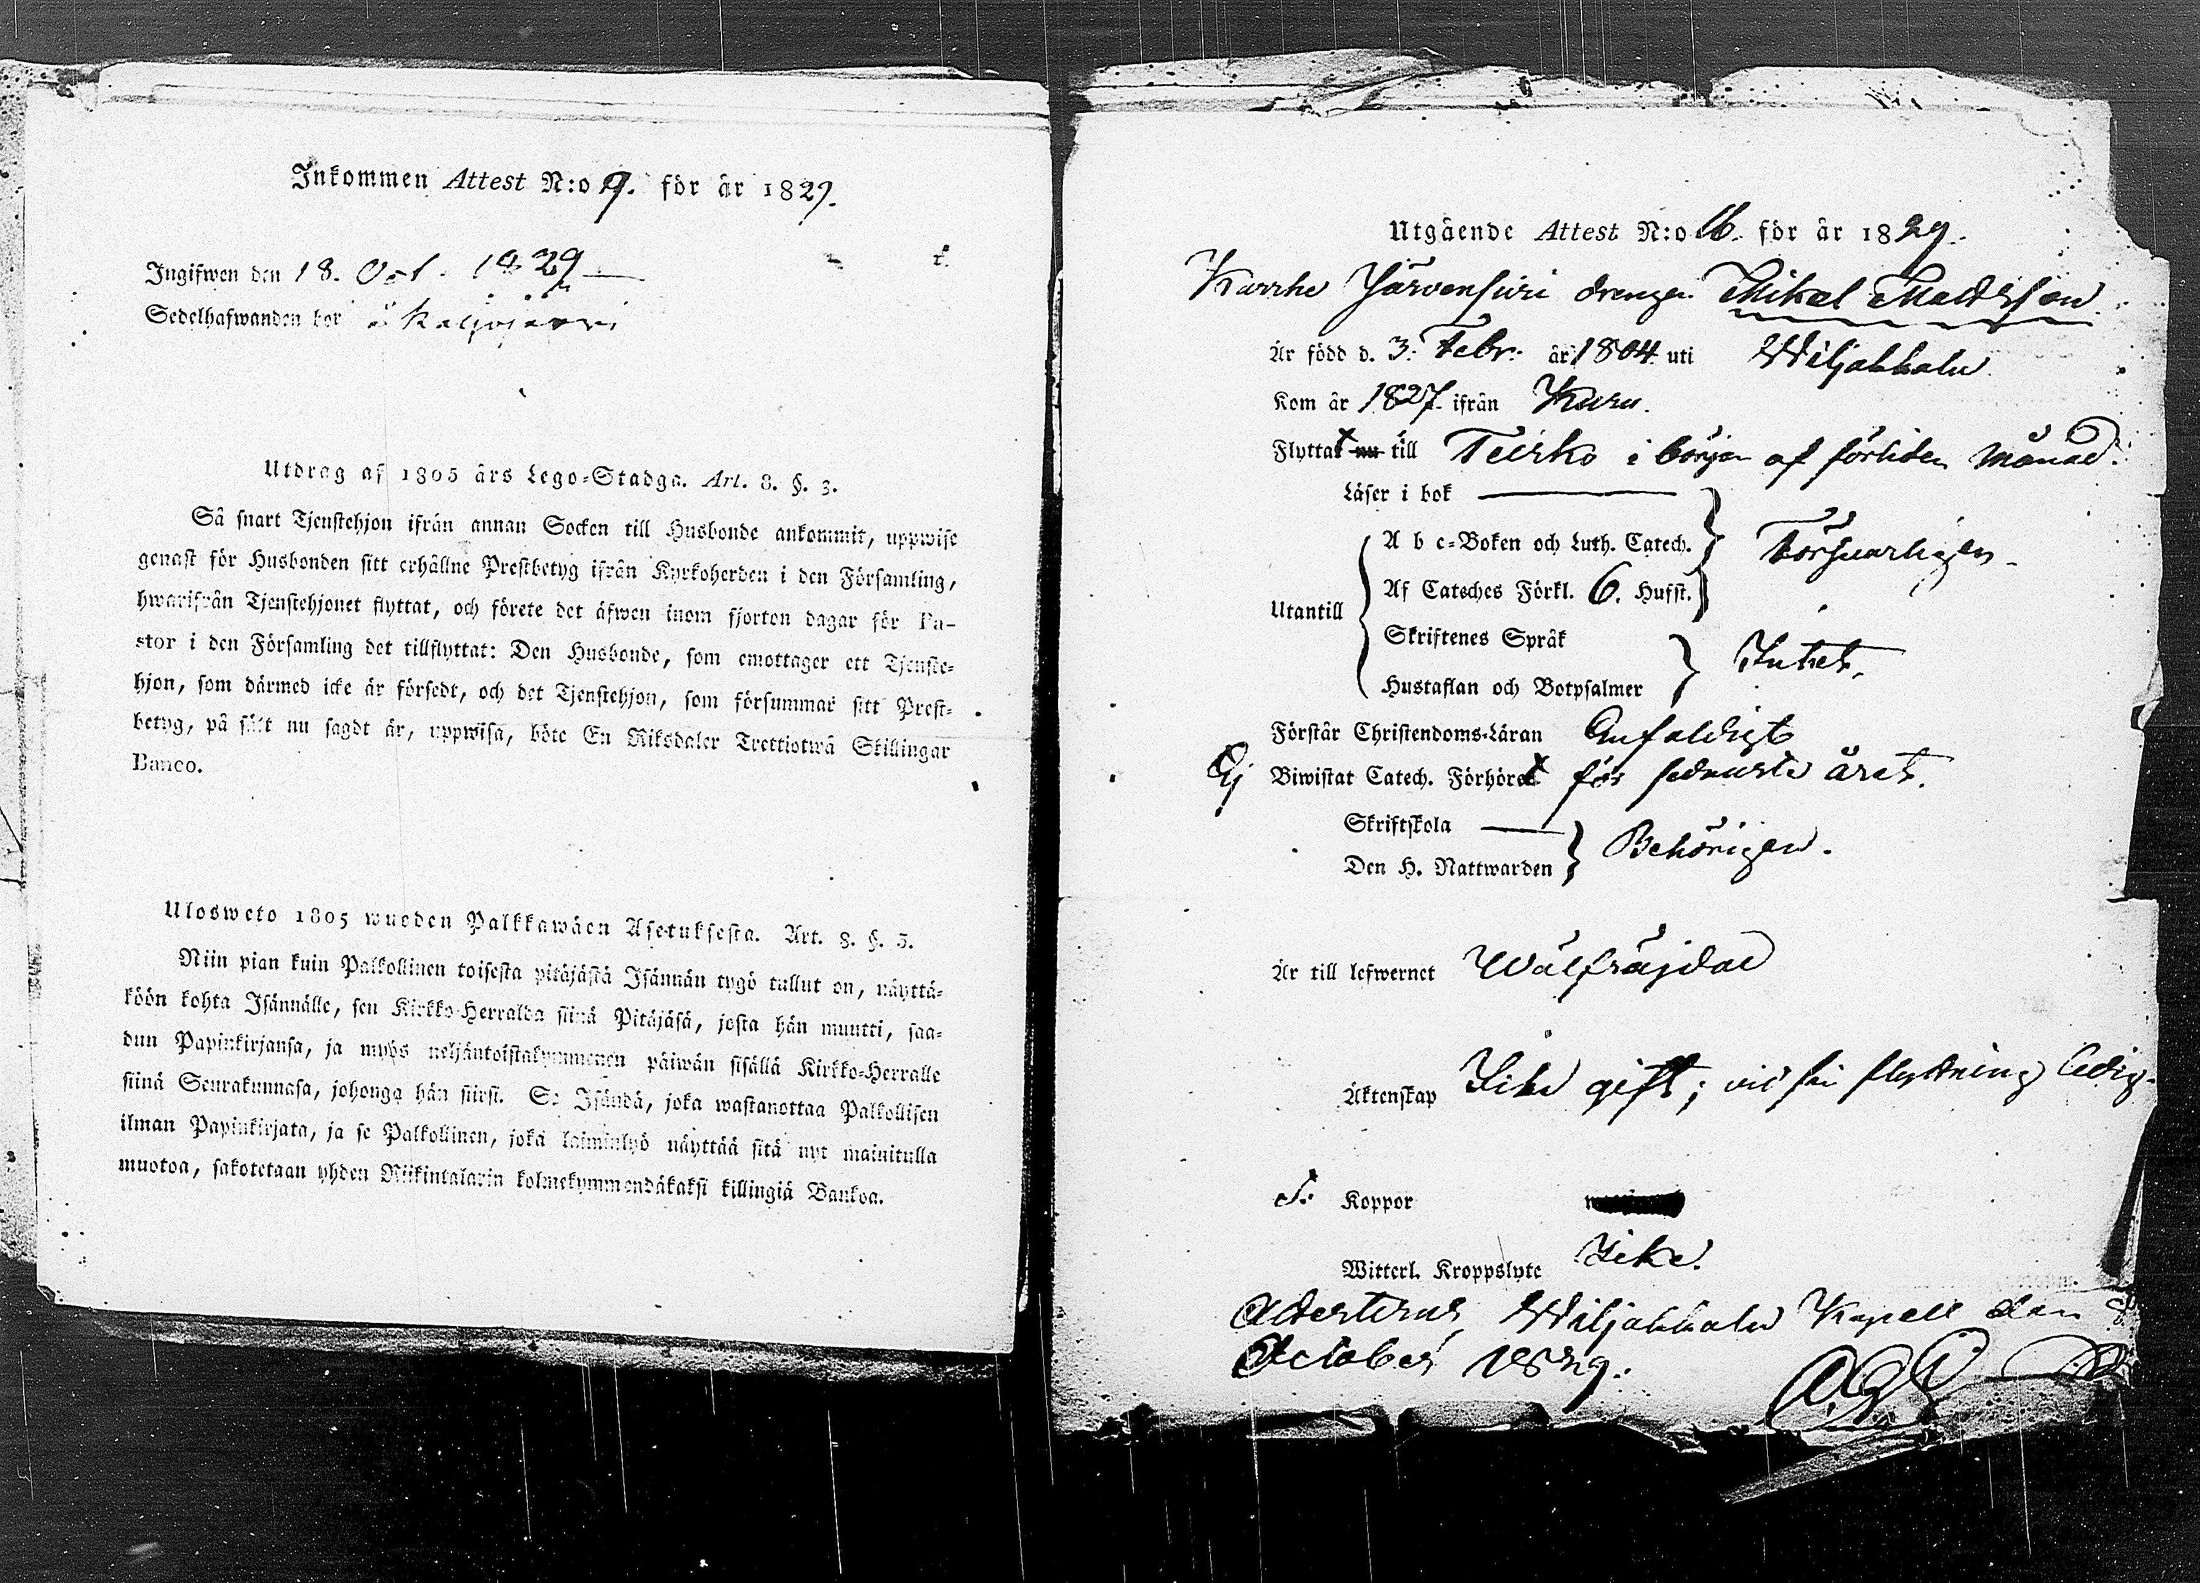 Inkommen Attest N:o 9. för år 1829.
Ingifwen den 18. Oct. 1829
Sedelhafwanden bor i
Utdrag af 1805 års Lego-Stadga. Art. 8. §. 3.
Så snart Tjenstehjon ifrån annan Socken till Husbonde ankommit, uppwise
genast för Husbonden sitt erhållne Prestbetyg ifrån Kyrkoherden i den Församling,
hwarifrån Tjenstehjonet flyttat, och förete det äfwen inom fjorton dagar för Pa-
stor i den Församling det tillflyttat: Den Husbonde, som emottager ett Tjenste-
hjon, som därmed icke är försedt, och det Tjenstehjon, som försummar sitt Prest-
betyg, på sätt nu sagdt är, uppwisa, böte En Riksdaler Trettiotwå Skillingar
Banco.
Ulosweto 1805 wuoden Palkkawäen Asetuksesta. Art. 8. §. 3.
Niin pian kuin Palkollinen toisesta pitäjästä Isännän tygö tullut on, näyttä-
köön kohta Isännälle, sen Kirkko-Herralda siinä Pitäjäsä, josta hän muutti, saa-
dun Papinkirjansa, ja myös neljäntoistakymmenen päiwän sisällä Kirkko-Herralle
siinä Seurakunnasa, johonga hän siirsi. Se Isändä, joka wastanottaa Palkollisen
ilman Papinkirjata, ja se Palkollinen, joka laiminlyö näyttää sitä nyt mainitulla
muotoa, sakotetaan yhden Riikintalarin kolmekymmendäkaksi killingiä Bankoa.
Utgående Attest N:o 16. för år 1829.
Järvensivu drengen Mikel Mattsson
Är född d. 3. Febr. år 1804 uti Wiljakkala
Kom år 1827 ifrån Kuru.
Flyttat nu till Teisko i början af förliden månad.
Läser i bok
A b c-Boken och Luth. Catech. } Försvarligen
Utantill { Af Cateches Förkl. 6. Hufst.
Skriftenes Språk } Intet.
Hustaflan och Botpsalmer
Förstår Christendoms-Läran Enfaldigt
Ej Biwistat Catech. Förhöret för sednaste året.
Skriftskola
Den H. Nattwarden } Behörigen.
Är till lefwernet Wälfräjdad
Äktenskap Icke gift; vid sin flyttning ledig.
Koppor
Witterl. Kroppslyte Icke.
Attesteras Wiljakkala Kapell den
October 1829.